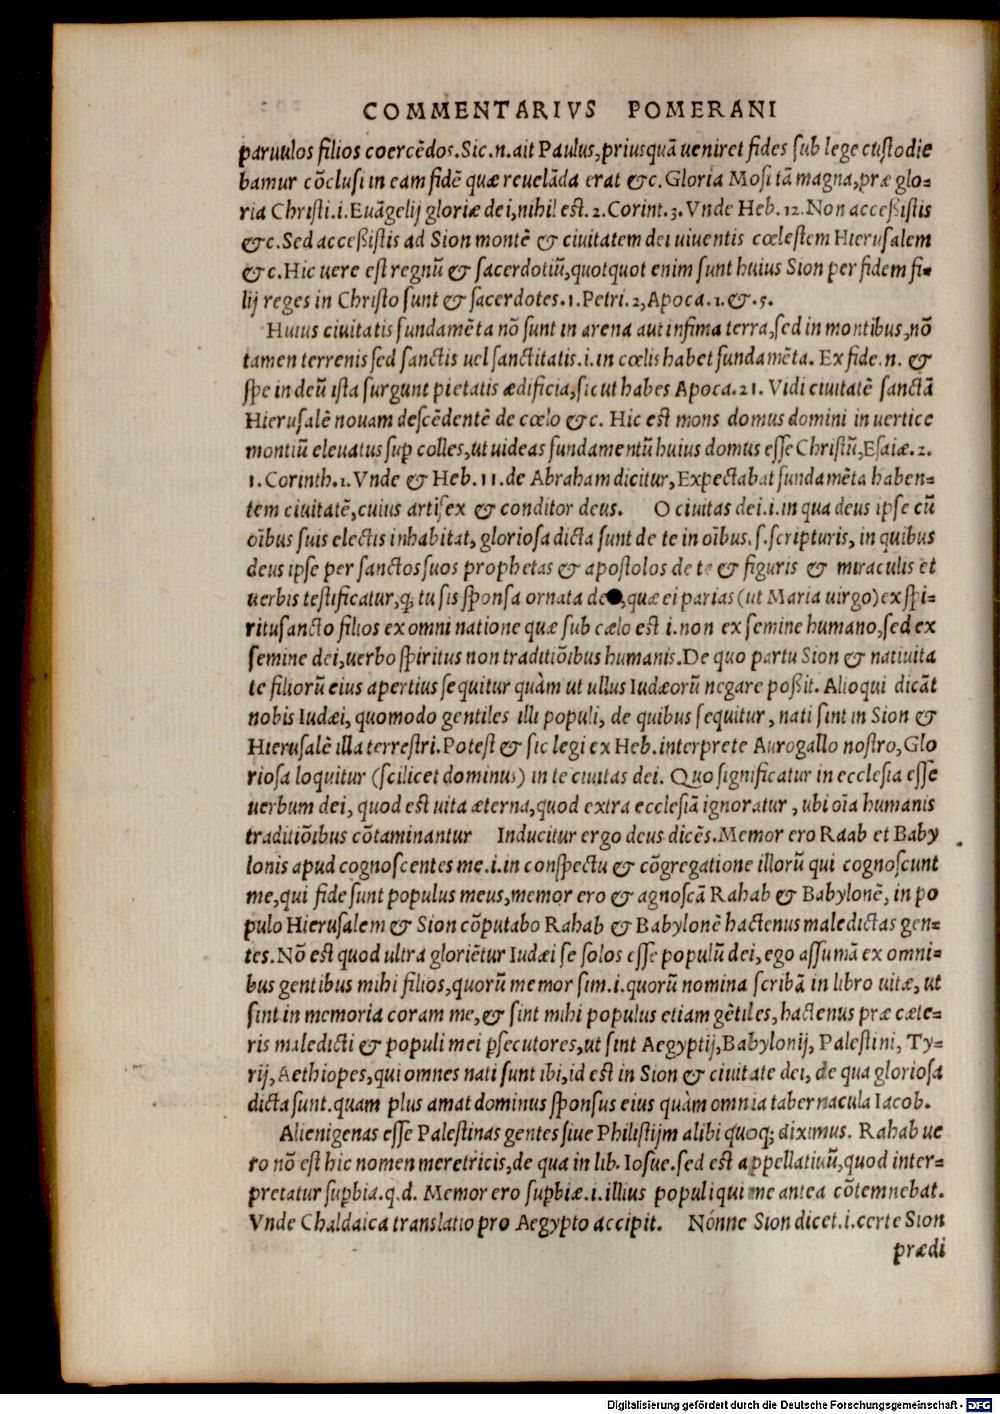 COMMENTARIVS POMERANI
paruulos filios coercēdos. Sic.n.ait Paulus, priusquā ueniret fides sub lege custodie
bamur cōclusi in eam fidē quæ reuelāda erat &c. Gloria Mosi tā magna, præ glo-
ria Christi.i. Euāgelij gloriæ dei, nihil est. 2. Corint. 3. Vnde Heb. 12. Non accessistis
&c. Sed accessistis ad Sion montē & ciuitatem dei uiuentis cœlestem Hierusalem
&c. Hic uere est regnū & sacerdotiū, quotquot enim sunt huius Sion per fidem fi-
lij reges in Christo sunt & sacerdotes. 1. Petri. 2, Apoca. 1. &. 5.
Huius ciuitatis fundamēta nō sunt in arena aut infima terra, sed in montibus, nō
tamen terrenis sed sanctis uel sanctitatis.i.in cœlis habet fundamēta. Ex fide.n. &
spe in deū ista surgunt pietatis ædificia, sicut habes Apoca. 21. Vidi ciuitatē sanctā
Hierusalē nouam descēdentē de cœlo &c. Hic est mons domus domini in uertice
montiū eleuatus sup colles, ut uideas fundamentū huius domus esse Christū, Esaiæ. 2.
1. Corinth. 1. Vnde & Heb. 11. de Abraham dicitur, Expectabat fundamēta haben-
tem ciuitatē, cuius artifex & conditor deus. O ciuitas dei.i.in qua deus ipse cū
oībus suis electis inhabitat, gloriosa dicta sunt de te in oībus.s.scripturis, in quibus
deus ipse per sanctos suos prophetas & apostolos de te & figuris & miraculis et
uerbis testificatur, q; tu sis sponsa ornata deo, quæ ei parias (ut Maria uirgo) ex spi-
ritusancto filios ex omni natione quæ sub cælo est i. non ex semine humano, sed ex
semine dei, uerbo spiritus non traditiōibus humanis. De quo partu Sion & natiuita
te filiorū eius apertius sequitur quàm ut ullus Iudæorū negare possit. Alioqui dicāt
nobis Iudæi, quomodo gentiles illi populi, de quibus sequitur, nati sint in Sion &
Hierusalē illa terrestri. Potest & sic legi ex Heb. interprete Aurogallo nostro, Glo
riosa loquitur (scilicet dominus) in te ciuitas dei. Quo significatur in ecclesia esse
uerbum dei, quod est uita æterna, quod extra ecclesiā ignoratur, ubi oīa humanis
traditiōibus cōtaminantur Inducitur ergo deus dicēs. Memor ero Raab et Baby
lonis apud cognoscentes me.i.in conspectu & cōgregatione illorū qui cognoscunt
me, qui fide sunt populus meus, memor ero & agnoscā Rahab & Babylonē, in po
pulo Hierusalem & Sion cōputabo Rahab & Babylonē hactenus maledictas gen-
tes. Nō est quod ultra gloriētur Iudæi se solos esse populū dei, ego assumā ex omni-
bus gentibus mihi filios, quorū memor sim.i.quorū nomina scribā in libro uitæ, ut
sint in memoria coram me, & sint mihi populus etiam gētiles, hactenus præ cæte-
ris maledicti & populi mei psecutores, ut sint Aegyptij, Babylonij, Palestini, Ty-
rij, Aethiopes, qui omnes nati sunt ibi, id est in Sion & ciuitate dei, de qua gloriosa
dicta sunt. quam plus amat dominus sponsus eius quàm omnia tabernacula Iacob.
Alienigenas esse Palestinas gentes siue Philistijm alibi quoq; diximus. Rahab ue
ro nō est hic nomen meretricis, de qua in lib. Iosue. sed est appellatiuū, quod inter-
pretatur supbia. q.d. Memor ero supbiæ.i.illius populi qui me antea cōtemnebat.
Vnde Chaldaica translatio pro Aegypto accipit. Nónne Sion dicet.i.certe Sion
prædi
Digitalisierung gefördert durch die Deutsche Forschungsgemeinschaft - DFG